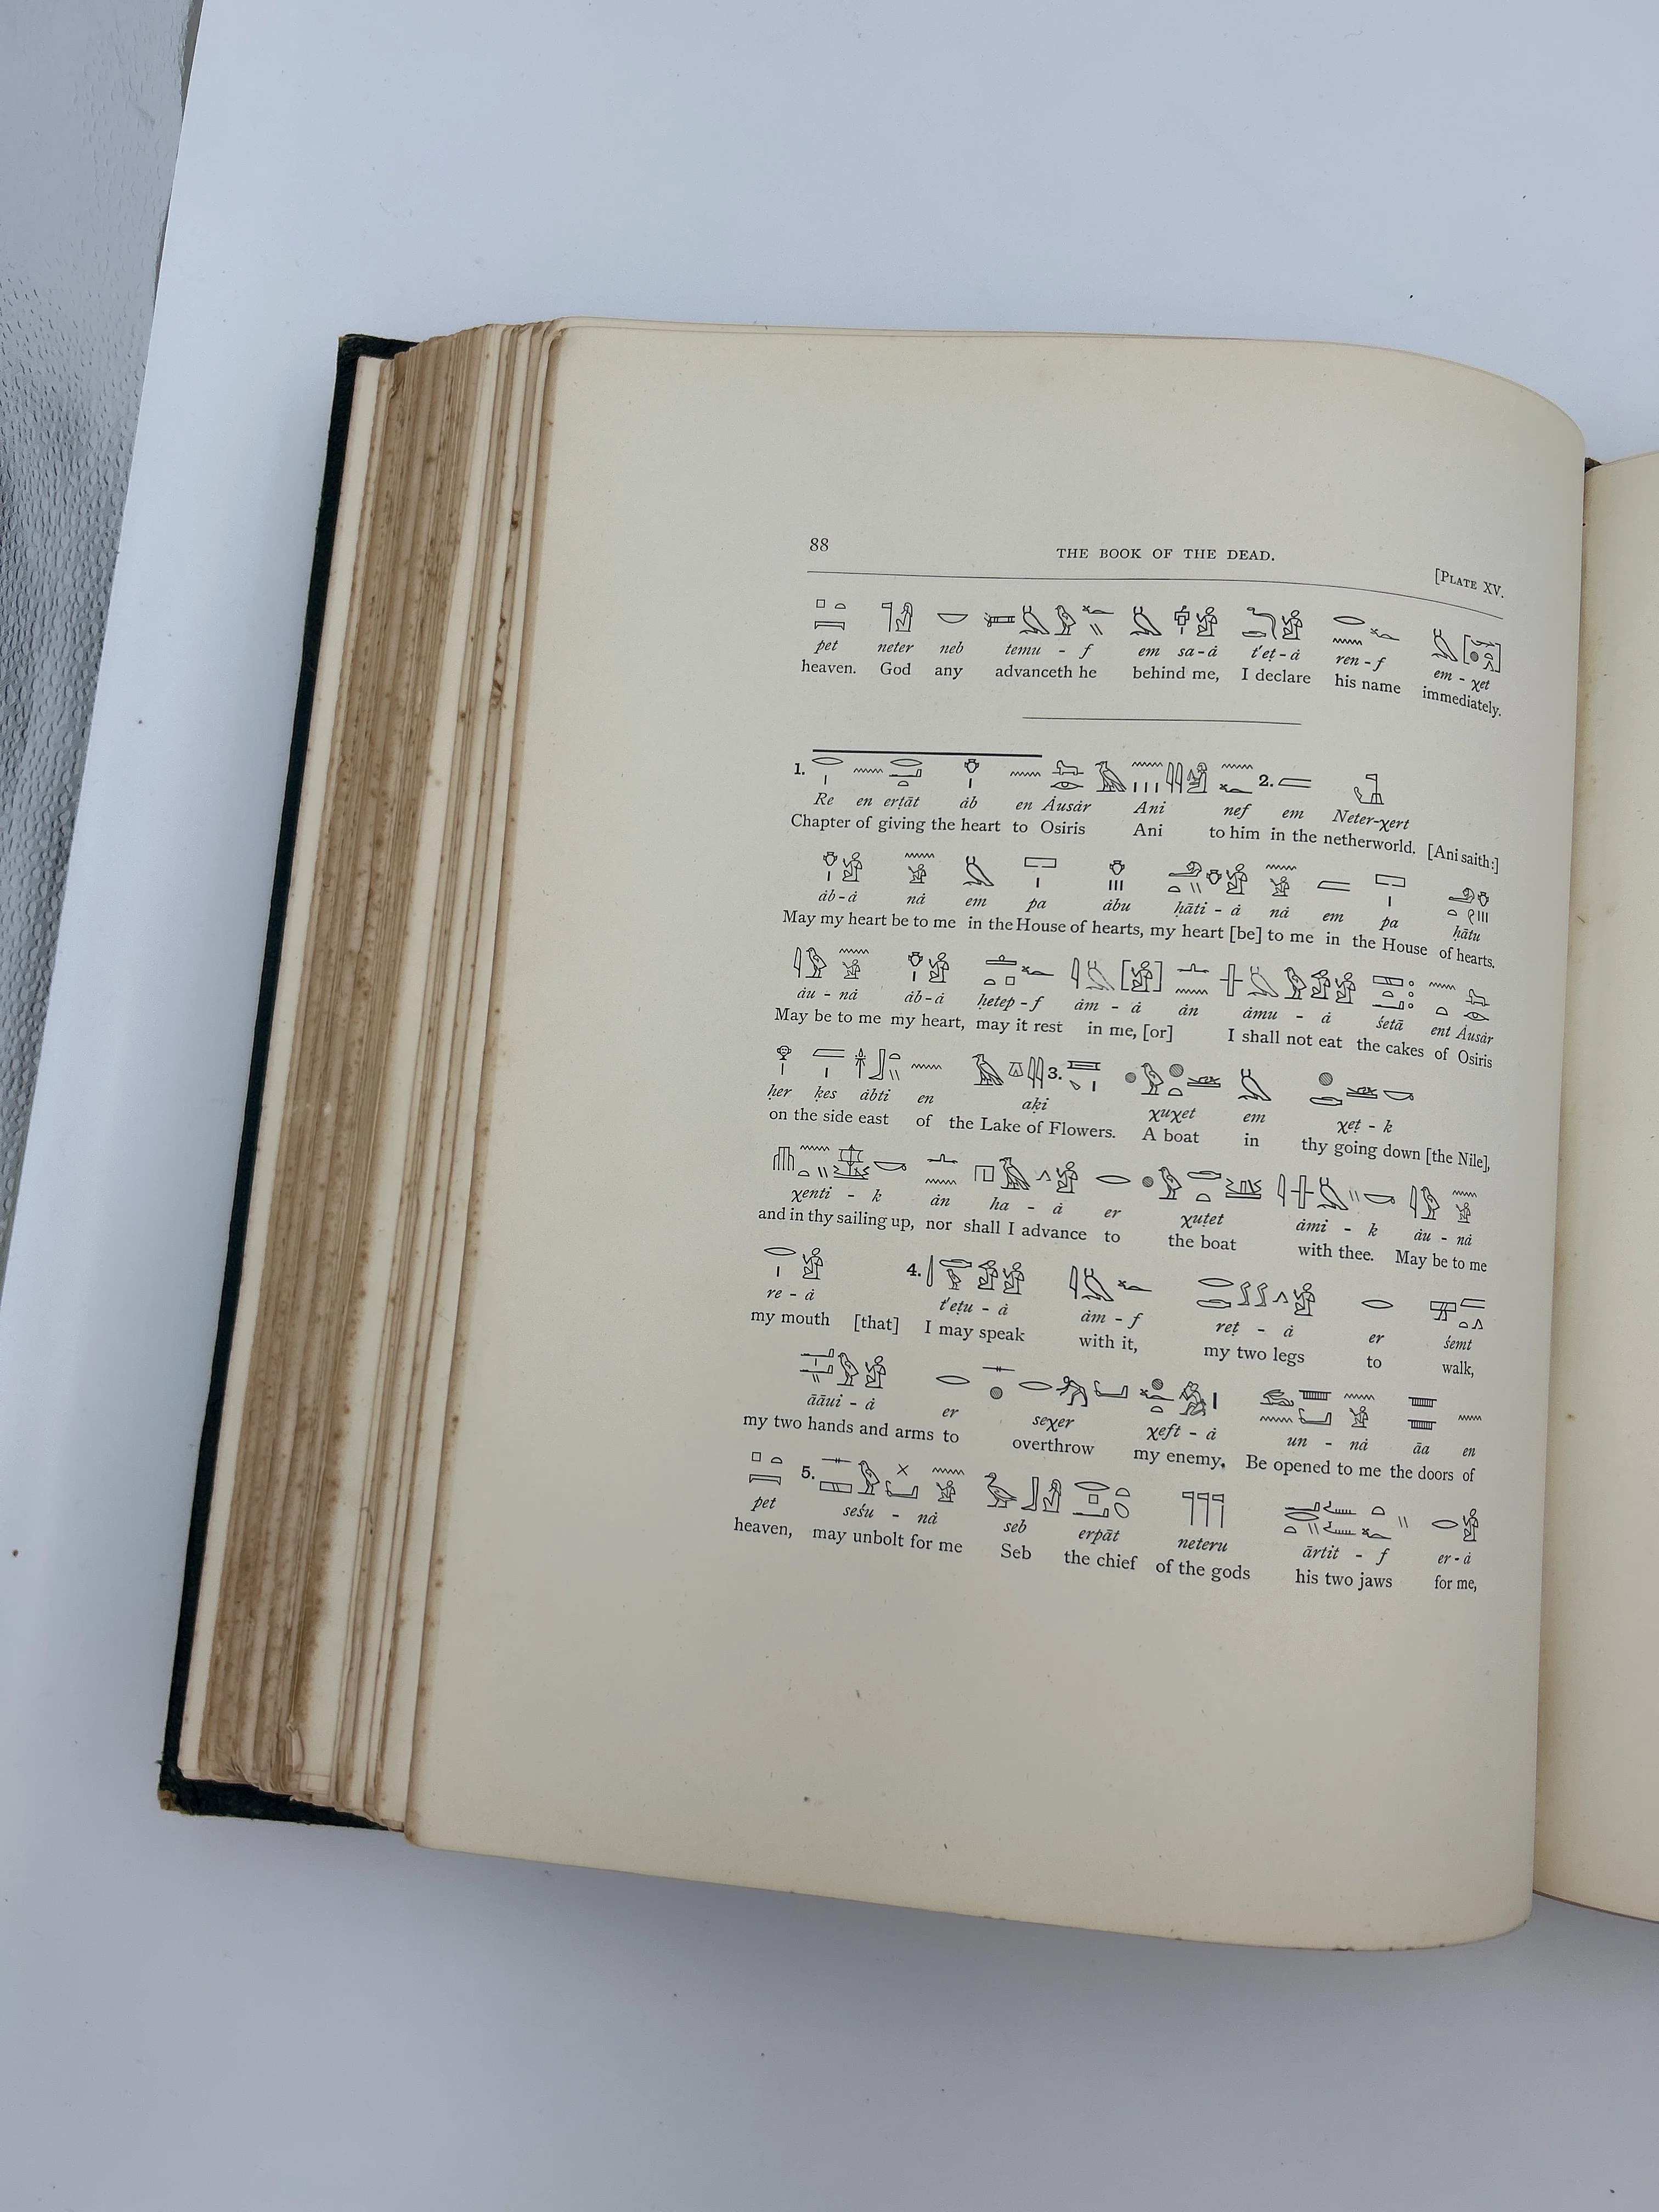 88 THE BOOK OF THE DEAD. [PLATE XV.
pet neter neb temu - f em sa-ȧ t'eṭ-ȧ ren-f em-χet
heaven. God any advanceth he behind me, I declare his name immediately.
1. 2.
Re en erṭāt ȧb en Ȧusȧr Ani nef em Neter-χert
Chapter of giving the heart to Osiris Ani to him in the netherworld. [Ani saith:]
ȧb-ȧ nȧ em pa ȧbu ḥāti - ȧ nȧ em pa ḥātu
May my heart be to me in the House of hearts, my heart [be] to me in the House of hearts.
ȧu - nȧ ȧb-ȧ ḥetep-f ȧm - ȧ ȧn ȧmu - ȧ śetā ent Ȧusȧr
May be to me my heart, may it rest in me, [or] I shall not eat the cakes of Osiris
3.
ḥer ḳes ȧbti en aḳi χuχet em χeṭ - k
on the side east of the Lake of Flowers. A boat in thy going down [the Nile],
χenti - k ȧn ha - ȧ er χuṭet ȧmi - k ȧu - nȧ
and in thy sailing up, nor shall I advance to the boat with thee. May be to me
4.
re - ȧ t'eṭu - ȧ ȧm - f reṭ - ȧ er śemt
my mouth [that] I may speak with it, my two legs to walk,
āāui - ȧ er seχer χeft - ȧ un - nȧ āa en
my two hands and arms to overthrow my enemy. Be opened to me the doors of
5.
pet seśu - nȧ seb erpāt neteru ārtit - f er-ȧ
heaven, may unbolt for me Seb the chief of the gods his two jaws for me,